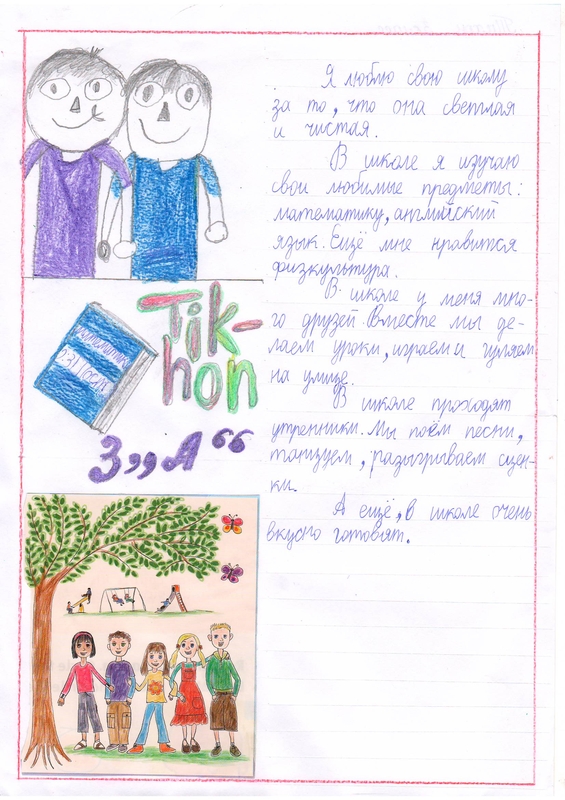 Я люблю свою школу
за то, что она светлая
и чистая.
В школе я изучаю
свои любимые предметы:
математику, английский
язык. Ещё мне нравится
физкультура.
В школе у меня мно-
го друзей. Вместе мы де-
лаем уроки, играем и гуляем
на улице.
В школе проходят
утренники. Мы поём песни,
танцуем, разыгрываем сцен-
ки.
А ещё, в школе очень
вкусно готовят.
Tik-
hon
3 „А“